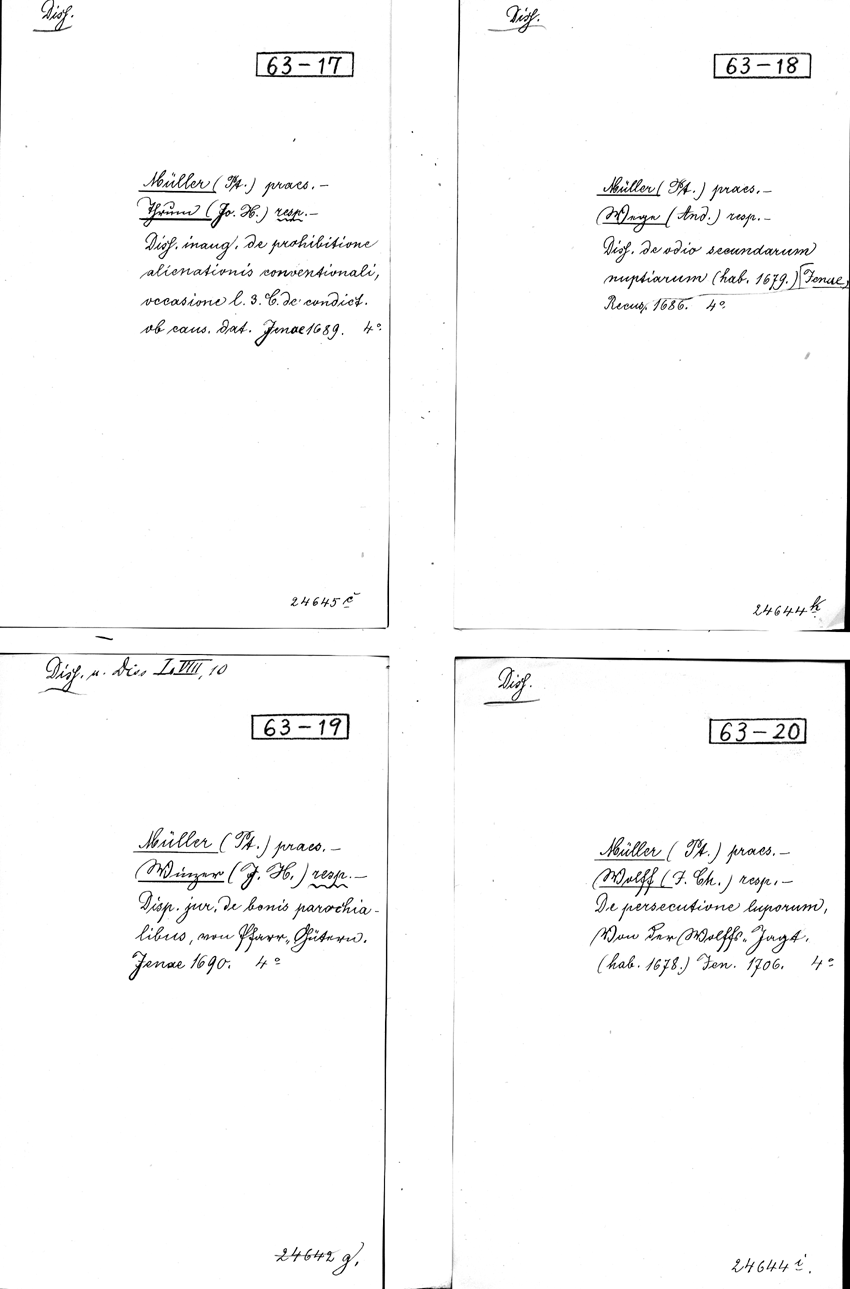 Diss.
63-17
Müller (Pt.) praes. –
Thrum (Jo. H.) resp. –
Diss. inaug. de prohibitione
alienationis conventionali,
occasione l. 3. C. de condict.
ob caus. dat. Jenae 1689. 4°.
24645 c
Diss.
63-18
Müller (Pt.) praes. –
Wege (And.) resp. –
Diss. de odio secundarum
nuptiarum (hab. 1679.) Jenae,
Recus. 1686. 4°.
24644 k
Diss. u. Diss I. VIII, 10
63-19
Müller (Pt.) praes. –
Winzer (J. H.) resp. –
Disp. jur. de bonis parochia-
libus, von Pfarr-Gütern.
Jenae 1690. 4°
24642 g.
Diss.
63-20
Müller (Pt.) praes. –
Wolff (J. Ch.) resp. –
De persecutione luporum,
Von der Wolffs-Jagt.
(hab. 1678.) Jen. 1706. 4°
24644 i.